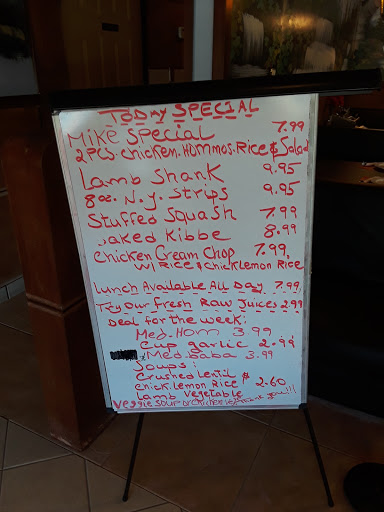 Today SPECIAL
Mike Special 7.99
2 PCS. chicken. Hommos. Rice & Salad
Lamb Shank 9.95
8oz. N.Y. Strips 9.95
Stuffed Squash 7.99
Baked Kibbe 8.99
Chicken Cream Chop 7.99
w/ Rice & Chick Lemon Rice
Lunch Available All Day 7.99
Try Our Fresh Raw Juices 2.99
Deal for the week:
Med. Hom 3.99
Cup garlic 2.99
Med. Baba 3.99
Soups:
Crushed Lentil
Chick. Lemon Rice $ 2.60
Lamb Vegetable
Veggie Soup or Chicken